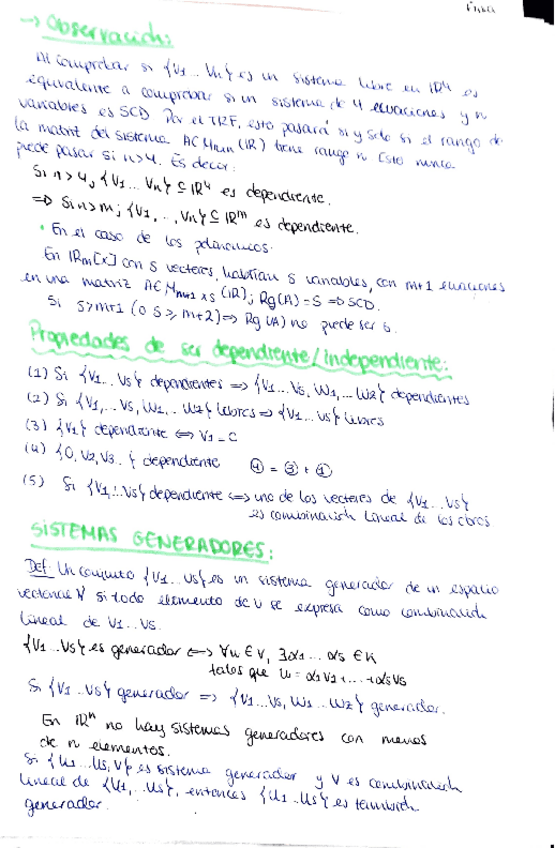 → Observación:
Al comprobar si {V1... Vn} es un sistema libre en IR4 es
equivalente a comprobar si un sistema de 4 ecuaciones y n
variables es SCD Por el TRF, esto pasará si y solo si el rango de
la matriz del sistema A∈M4xn(IR) tiene rango n Esto nunca
puede pasar si n>4. Es decir:
Si n>4, {V1... Vn} ⊆ IR4 es dependiente.
=> Si n>m; {V1, .., Vn} ⊆ IR^m es dependiente.
• En el caso de los polinomios.
En IRm[x] con s vectores, habrían s variables, con m+1 ecuaciones
en una matriz A∈Mm+1xs(IR); Rg(A)=S => SCD.
Si s>m+1 (o s≥m+2) => Rg(A) no puede ser s.
Propiedades de ser dependiente/independiente:
(1) Si {V1... Vs} dependientes => {V1... Vs, W1,... Wz} dependientes
(2) Si {V1,... Vs, W1... Wz} libres => {V1... Vs} libres
(3) {V1} dependiente <=> V1 = C
(4) {0, V2, V3..} dependiente ④ = ③ + ①
(5) Si {V1...Vs} dependiente <=> uno de los vectores de {V1...Vs}
es combinación lineal de los otros
SISTEMAS GENERADORES:
Def: Un conjunto {V1... Vs} es un sistema generador de un espacio
vectorial V si todo elemento de V se expresa como combinación
lineal de V1... Vs.
{V1...Vs} es generador <=> ∀u ∈ V, ∃α1... αs ∈ K
tales que u = α1V1+...+αsVs
Si {V1...Vs} generador => {V1...Vs, W1... Wz} generador.
En IR^n no hay sistemas generadores con menos
de n elementos.
Si {U1...Us, V} es sistema generador y V es combinación
lineal de {U1,...Us}, entonces {U1...Us} es también
generador.